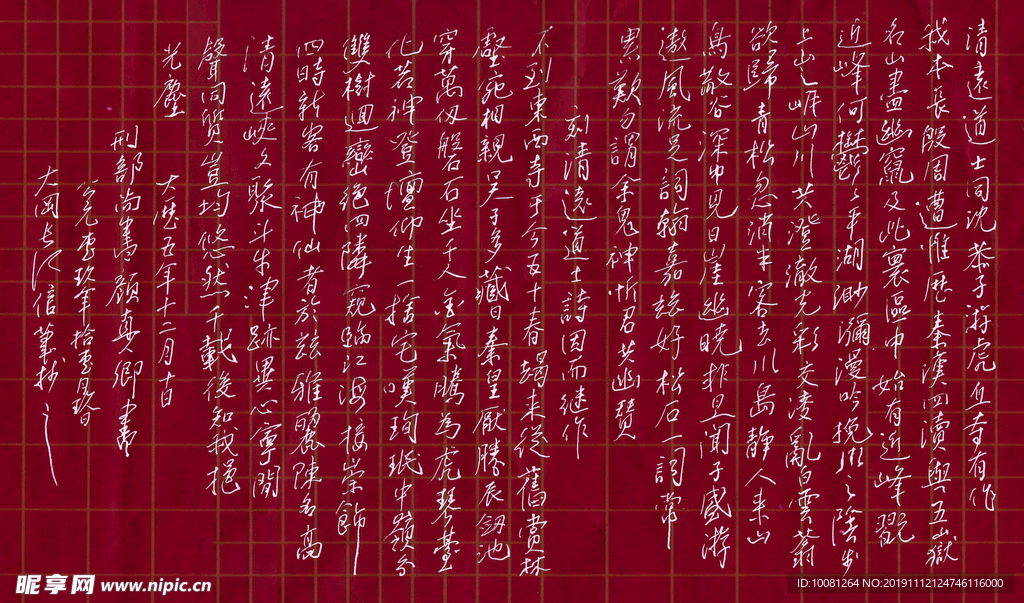 清遠道士同沈恭子游虎丘寺有作
我本長殷周遭罹歷秦漢四瀆與五嶽
名山盡幽竄及此寰區中始有近峰翫
近峰何鬱鬱平湖渺瀰漫吟挽川之陰步
上山之岸山川共澄澈光彩交凌亂白雲蓊
欲歸青松忽消半客去川島靜人來山
鳥散谷深中見日崖幽曉非旦聞子盛游
遨風流足詞翰嘉兹好松石一詞常
累歎勿謂余鬼神忻君共幽贊
刻清遠道士詩因而继作
不到東西寺于今五十春朅来從舊賞林
壑宛相親吴子多藏日秦皇厭勝辰劔池
穿萬仞盤石坐千人金氣騰為虎琴臺
化若神登壇仰生一捨宅嘆珣珉中嶺分
雙樹迴巒絕四隣窺臨江海接崇飾
四時新客有神仙者於兹雅麗陳名高
清遠峽文聚斗牛津跡異心寧間
聲同質豈均悠然千載後知我挹
光塵
大厯五年十二月十日
刑部尚書顏真卿書
大岡
信筆抄之
昵享网 www.nipic.cn
ID:10081264 NO:20191112124746116000